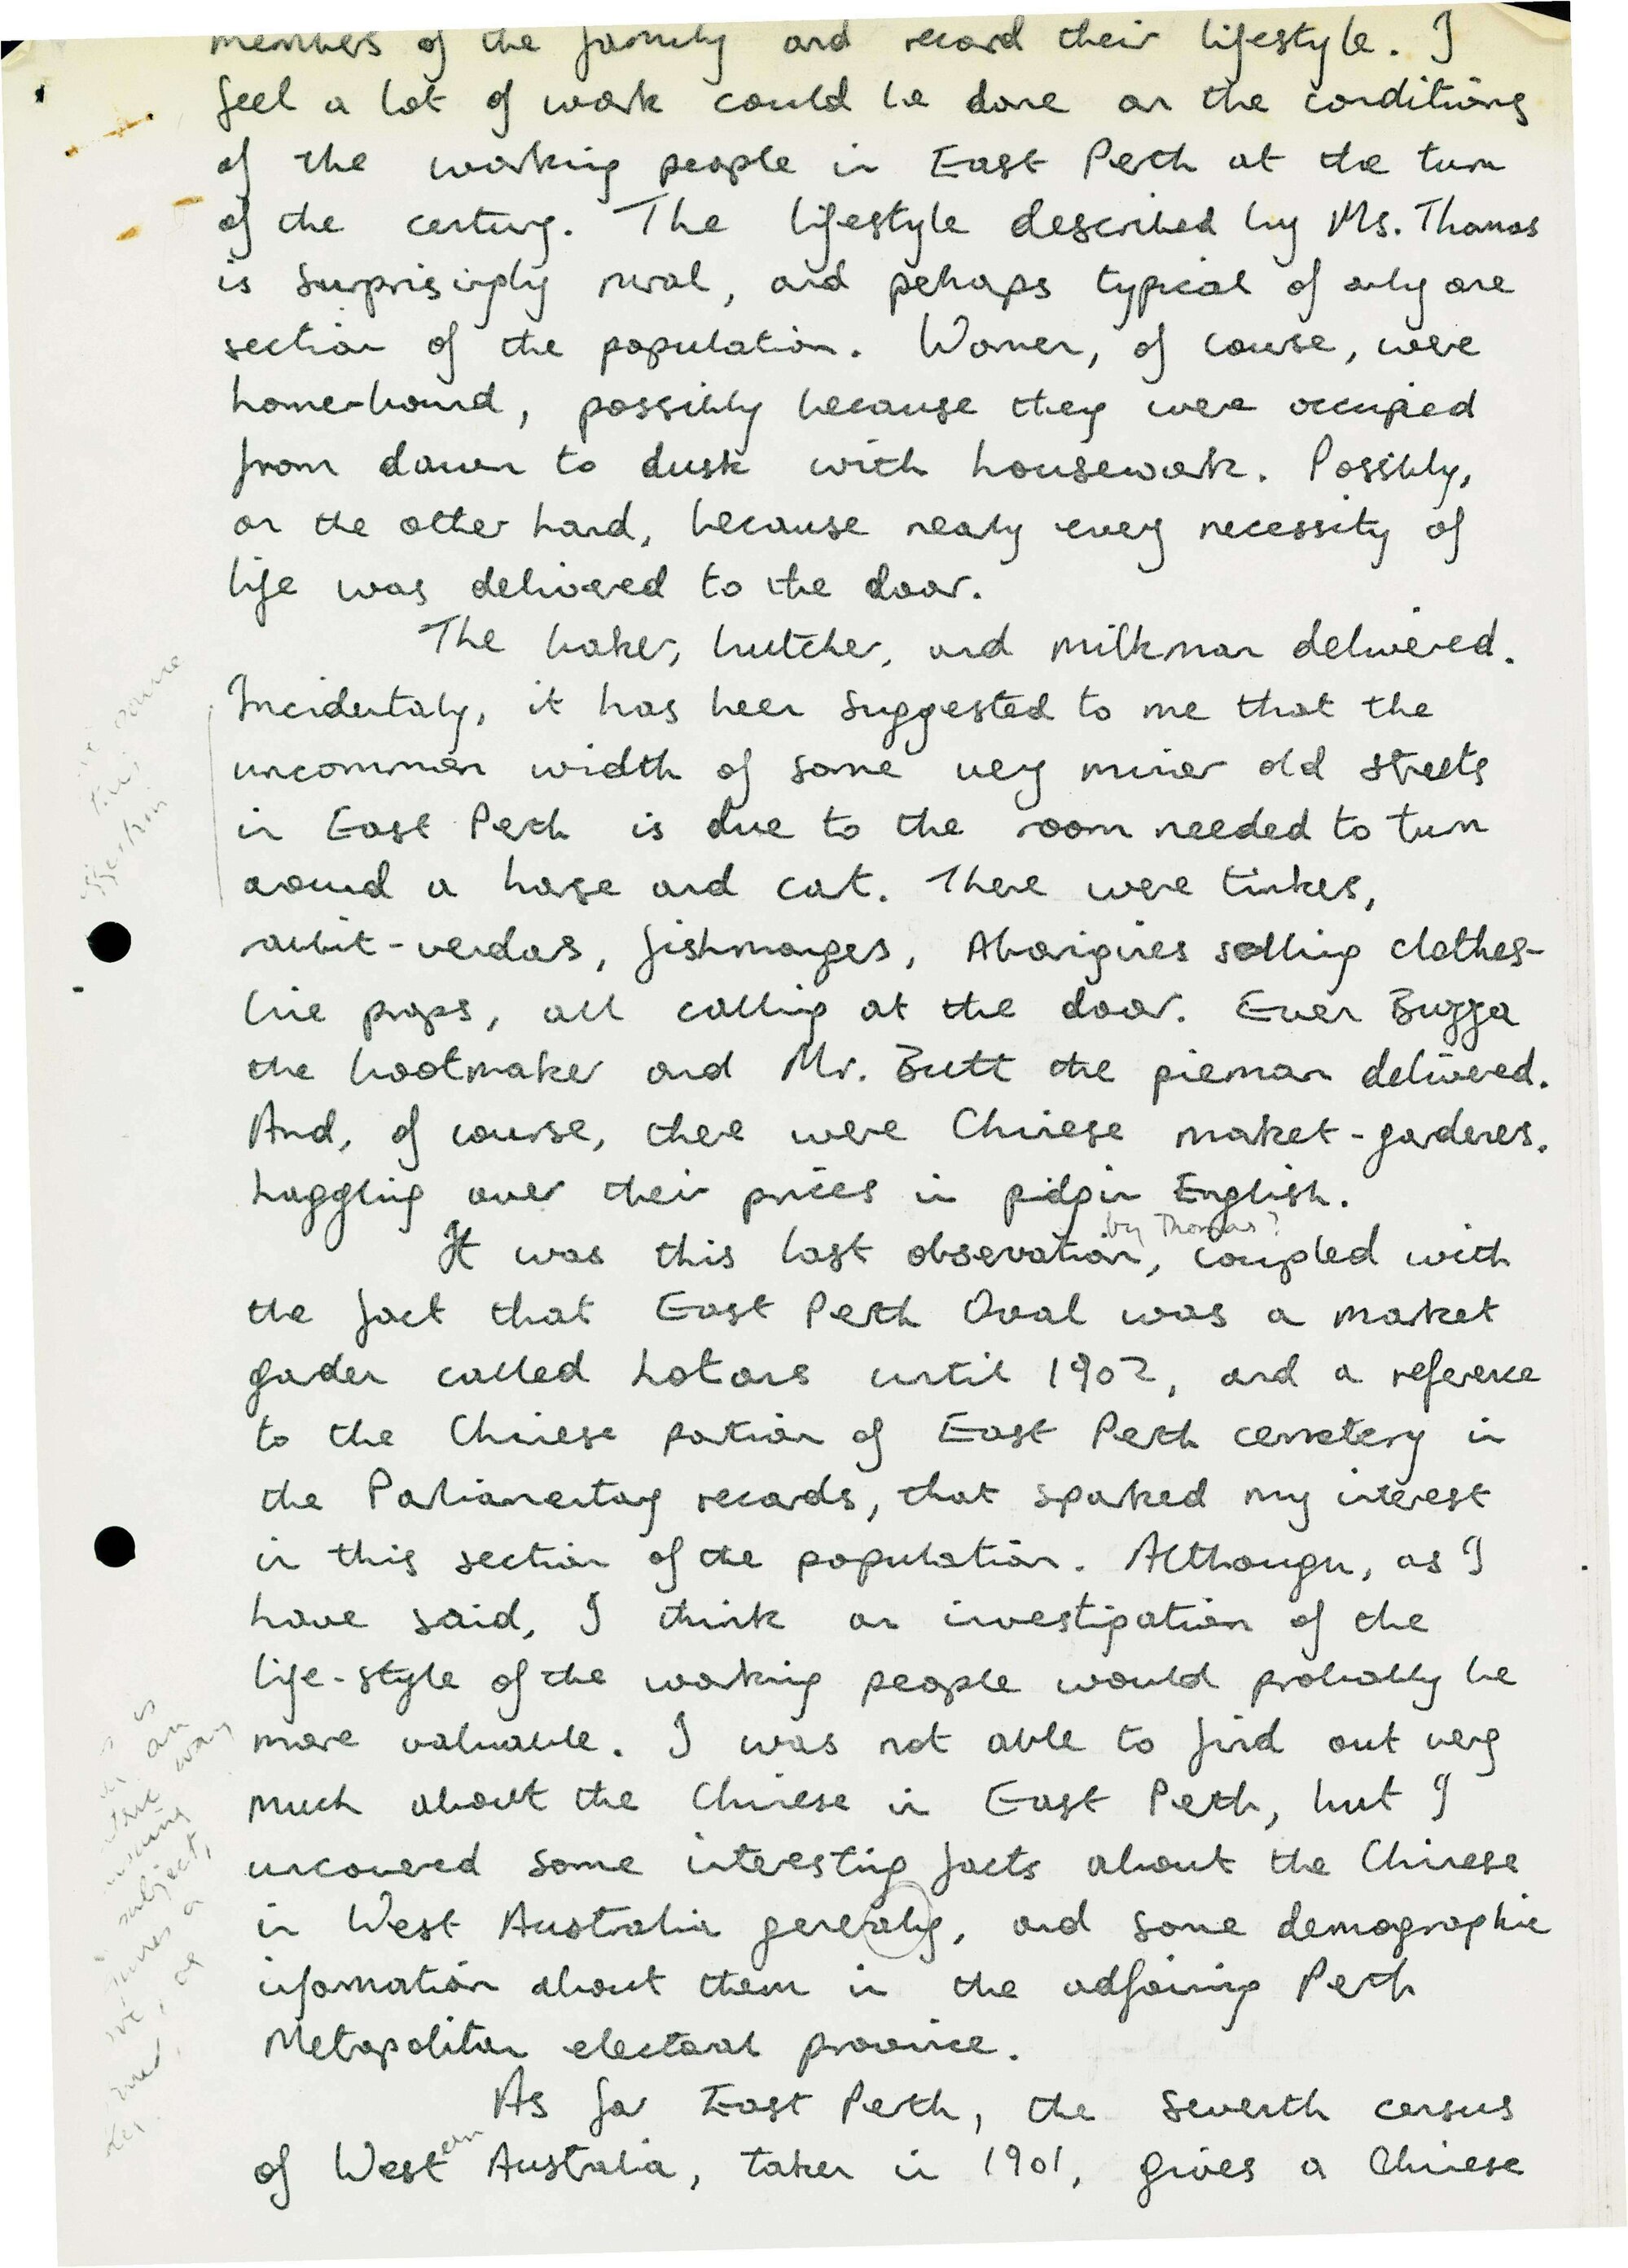 members of the family and record their lifestyle. I
feel a lot of work could be done on the conditions
of the working people in East Perth at the turn
of the century. The lifestyle described by Ms. Thomas
is surprisingly rural, and pehaps typical of only one
section of the population. Women, of course, were
home-bound, possibly because they were occupied
from dawn to dusk with housework. Possibly,
on the other hand, because nearly every necessity of
life was delivered to the door.
The baker, butcher, and milkman delivered.
Incidentaly, it has been suggested to me that the
uncommon width of some very minor old streets
in East Perth is due to the room needed to turn
around a horse and cart. There were tinkers,
rabbit-vendors, fishmongers, Aborigines selling clothes-
line props, all calling at the door. Even Bugga
the bootmaker and Mr. Butt the pieman delivered.
And, of course, there were Chinese market-gardeners.
haggling over their prices in pidgin English.
by Thomas?
It was this last observation, coupled with
the fact that East Perth Oval was a market
garden called Lotons until 1902, and a reference
to the Chinese portion of East Perth cemetery in
the Parliamentary records, that sparked my interest
in this section of the population. Although, as I
have said, I think an investigation of the
life-style of the working people would probably be
more valuable. I was not able to find out very
much about the Chinese in East Perth, but I
uncovered some interesting facts about the Chinese
in West Australia generaly, and some demographic
information about them in the adjoining Perth
Metropolitan electoral province.
As for East Perth, the seventh census
of Western Australia, taken in 1901, gives a Chinese